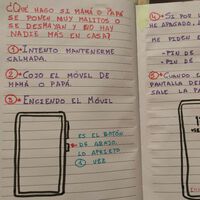 ¿QUÉ HAGO SI MAMÁ O PAPÁ
SE PONEN MUY MALITOS O
SE DESMAYAN Y NO HAY
NADIE MÁS EN CASA?
1. INTENTO MANTENERME
CALMADA.
2. COJO EL MÓVIL DE
MAMÁ O PAPÁ.
3. ENCIENDO EL MÓVIL
ES EL BOTÓN
DE ABAJO.
LO APRIETO
1 VEZ
4. SI POR
HE APAGADO,
ME PIDEN
-PIN DE
-PIN DE
5. CUANDO
PANTALLA DE
SALE LA PA